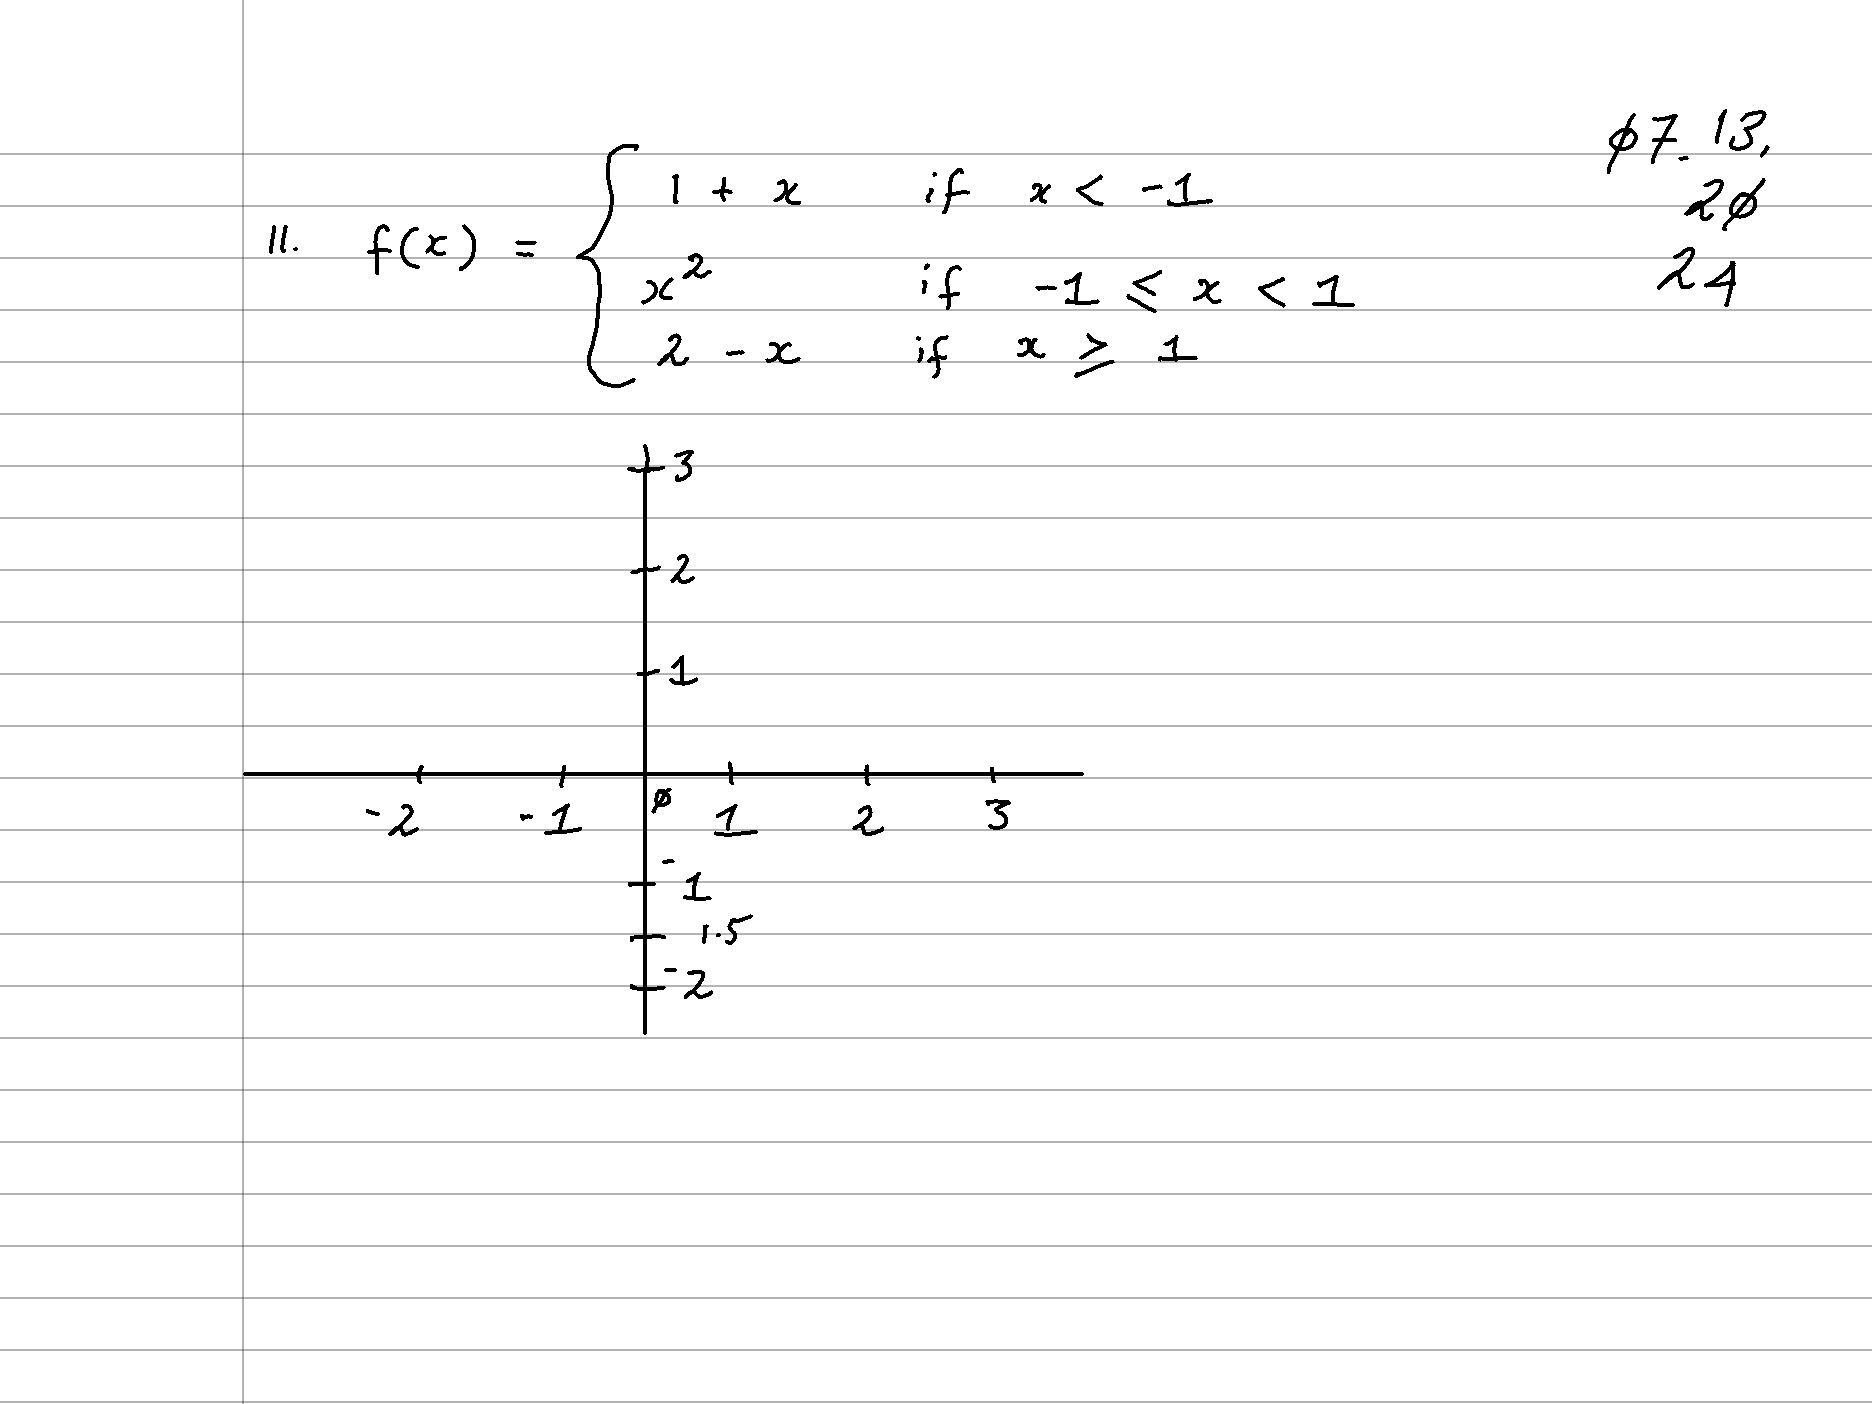 φ7. 13,
2φ
24
11. f(x) = { 1 + x if x < -1
x² if -1 ≤ x < 1
2 - x if x ≥ 1
3
2
1
-2 -1 φ 1 2 3
-1
1.5
-2